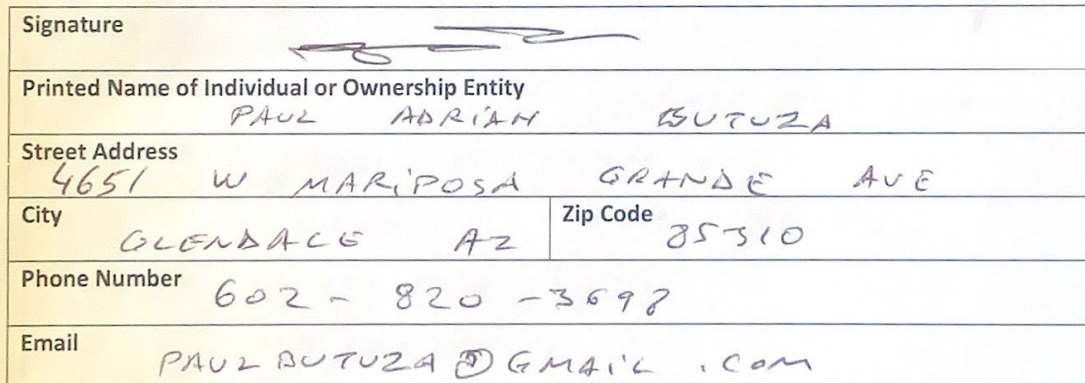 Signature
Printed Name of Individual or Ownership Entity
PAUL ADRIAN BUTUZA
Street Address
4651 W MARIPOSA GRANDE AVE
City GLENDALE AZ Zip Code 85310
Phone Number 602 - 820 - 3698
Email PAULBUTUZA@GMAIL.COM